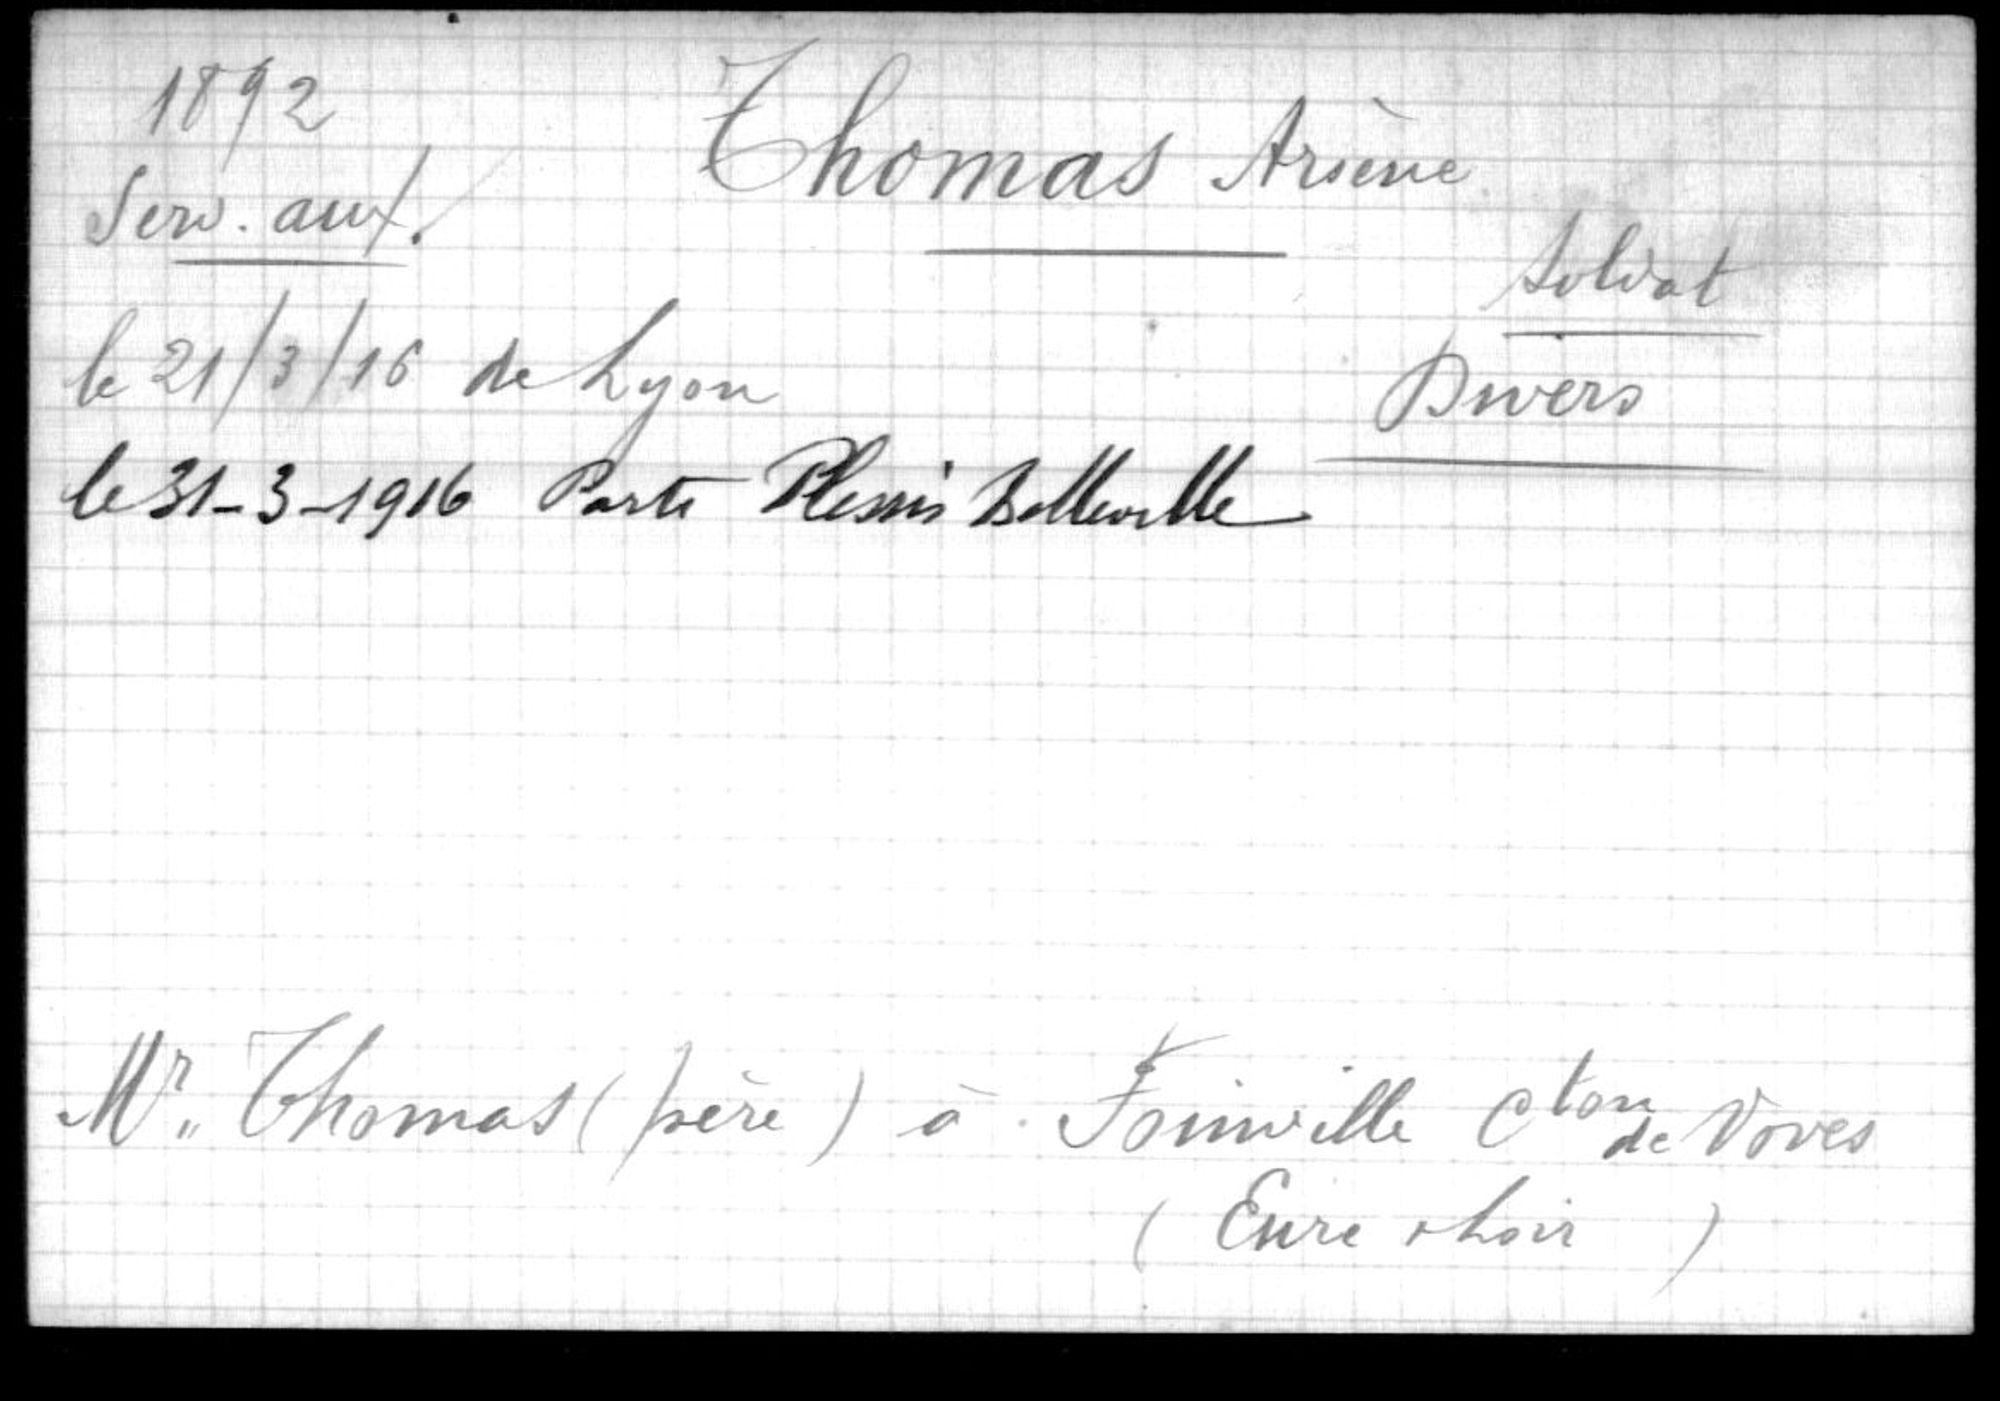 1892
Serv. aux.
Thomas Arsène
Soldat
Divers
le 21/3/16 de Lyon
le 31-3-1916 Parti Plessis Belleville
Mr. Thomas (père) à Foinville Cton de Voves
(Eure & Loir)